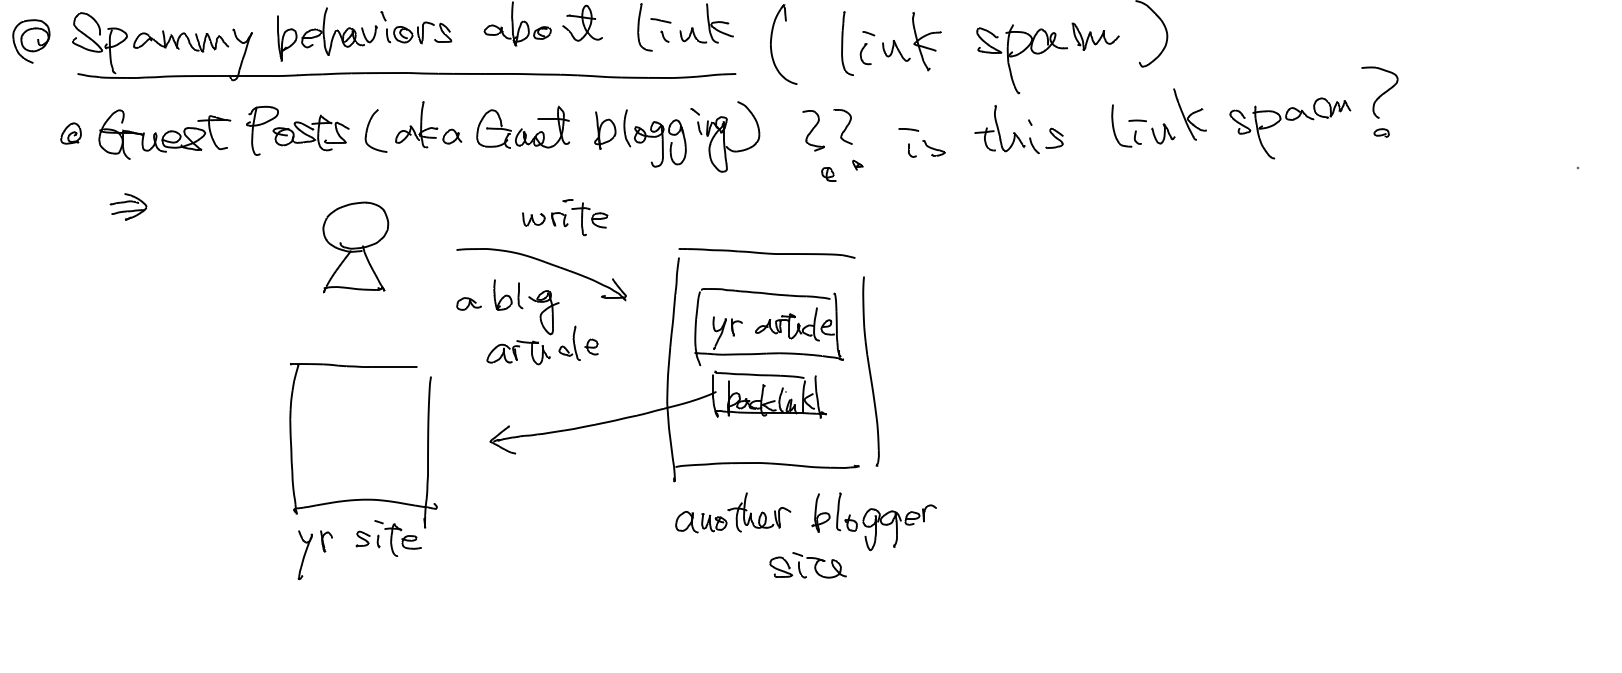 @ Spammy behaviors about link ( link spam )
@ Guest Posts (aka Gast blogging) ?? is this link spam?
⇒
write
a blog
article
yr article
backlink
yr site
another blogger
site